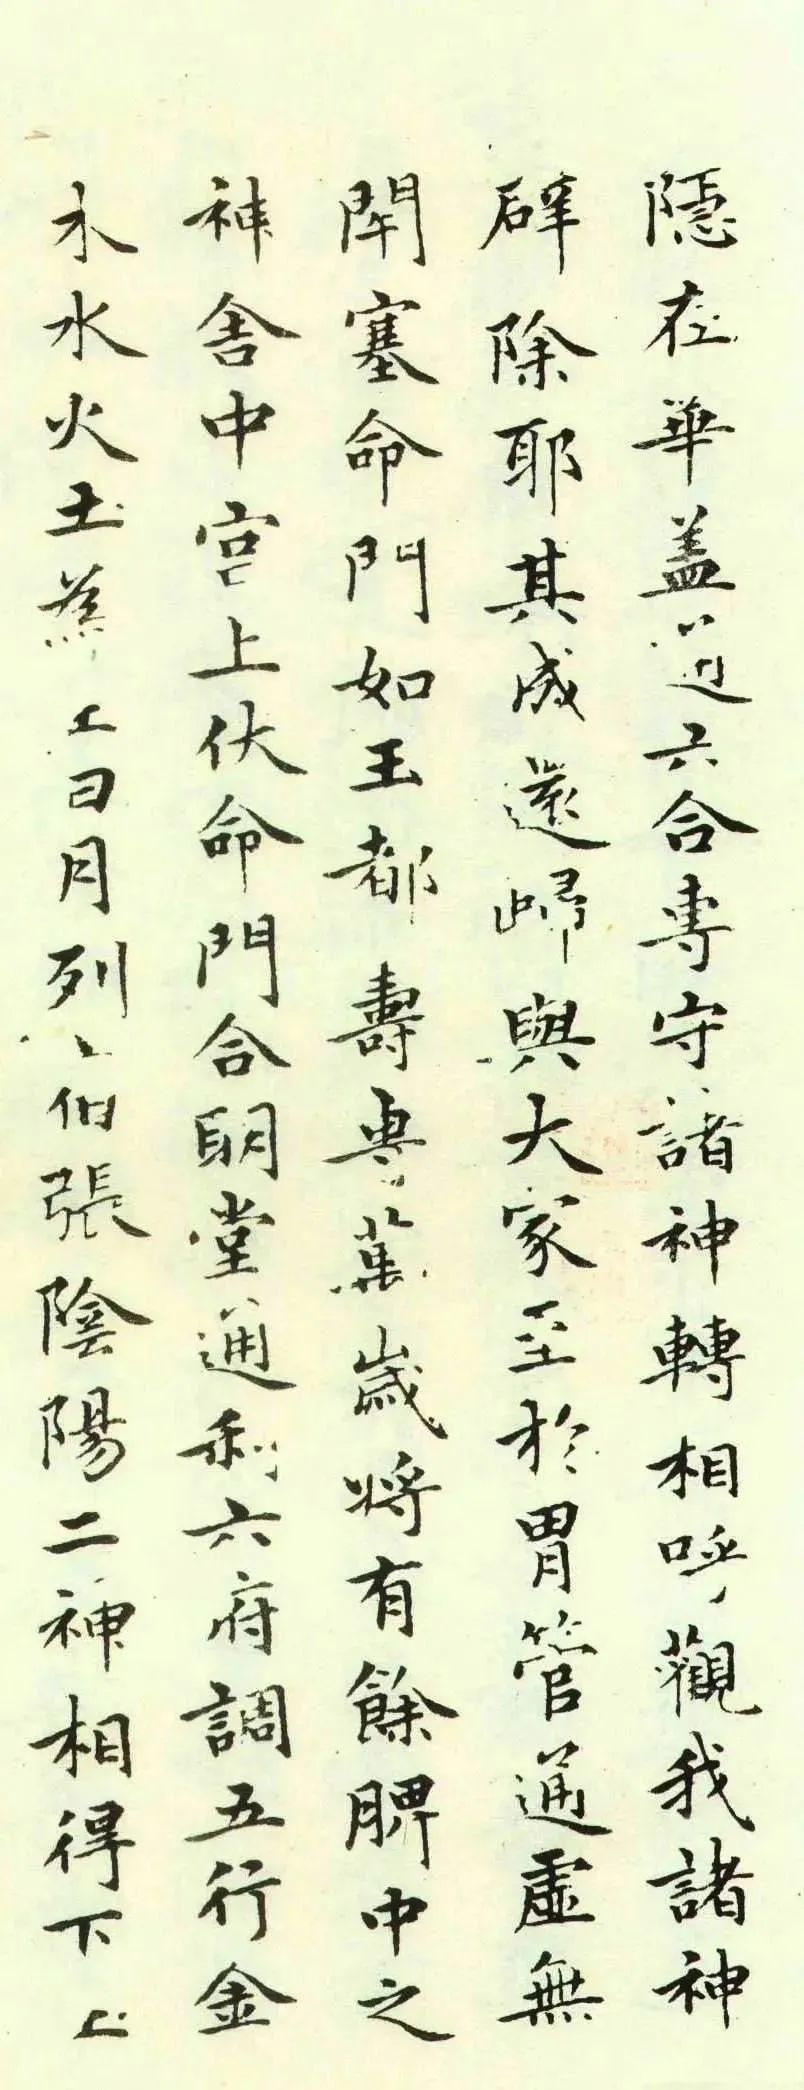 隱在華盖通六合專守諸神轉相呼觀我諸神
辟除耶其成還歸與大家至於胃管通虛無
閉塞命門如王都壽專萬歲將有餘脾中之
神舍中宮上伏命門合明堂通利六府調五行金
木水火土為上日月列伯張陰陽二神相得下上